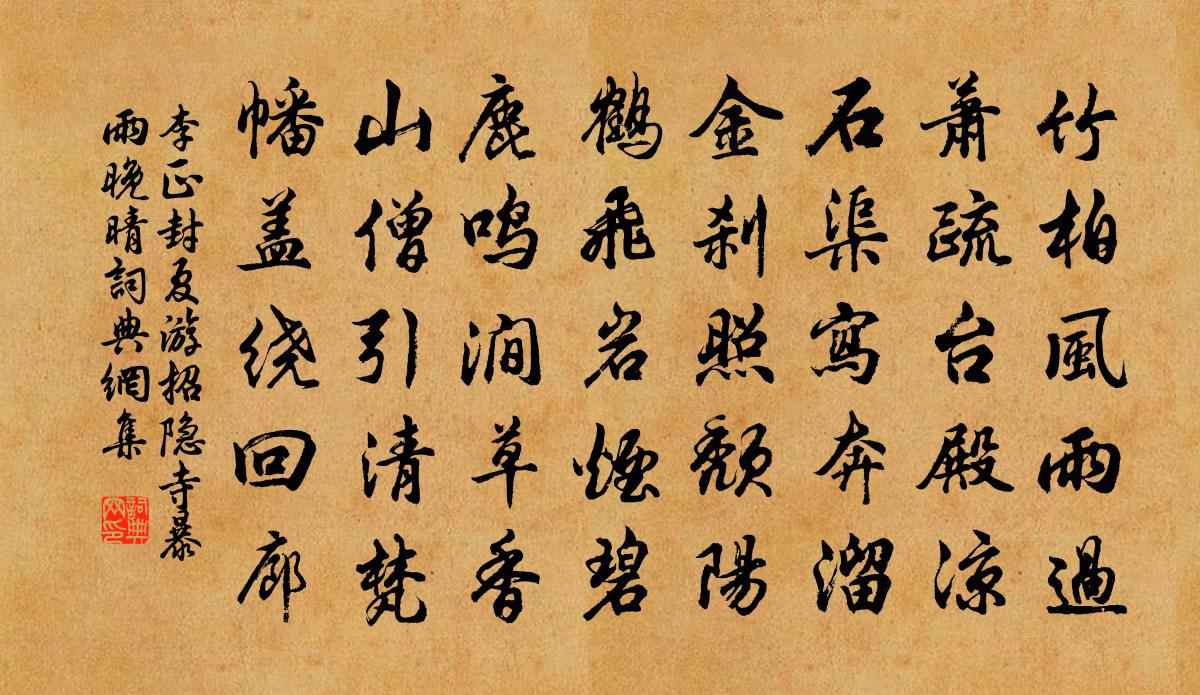 竹柏風雨過
蕭疏台殿凉
石渠寫奔溜
金刹照頹陽
鶴飛岩煙碧
鹿鳴澗草香
山僧引清梵
幡盖绕回廊
李正封夏游招隐寺暴
雨晚晴詞典網集